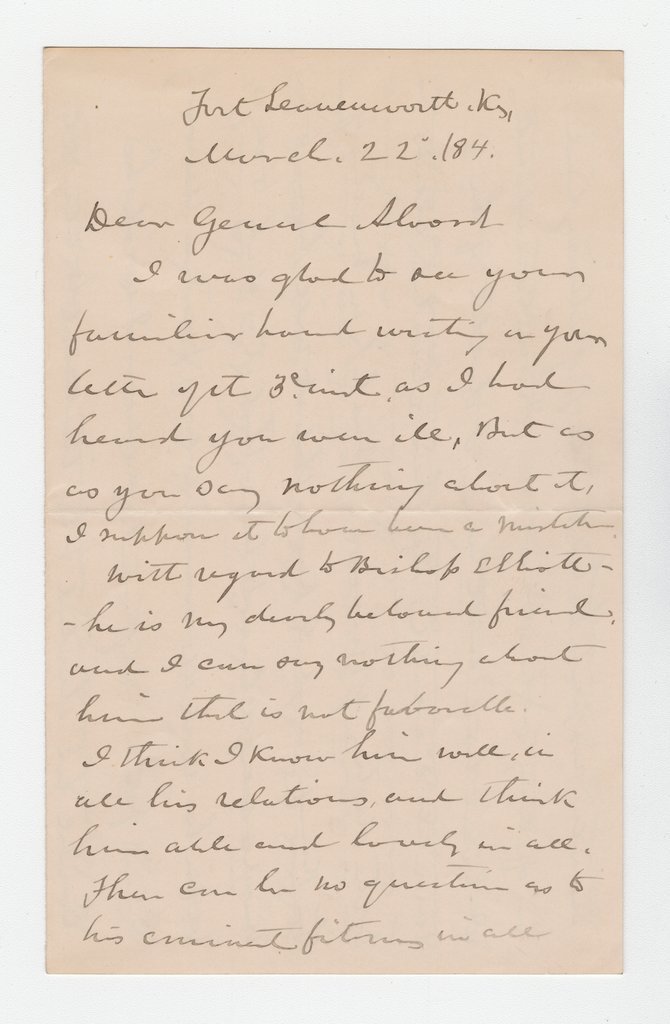 Fort Leavenworth. Ks,
March. 22". /84.
Dear General Alvord
I was glad to see your
familiar hand writing in your
letter of ye 3d. inst, as I had
heard you were ill, But as
as you say nothing about it,
I suppose it to have been a mistake.
With regard to Bishop Elliott -
- he is my dearly beloved friend,
and I can say nothing about
him that is not favorable.
I think I know him well, in
all his relations, and think
him able and lovely in all.
There can be no question as to
his eminent fitness in all